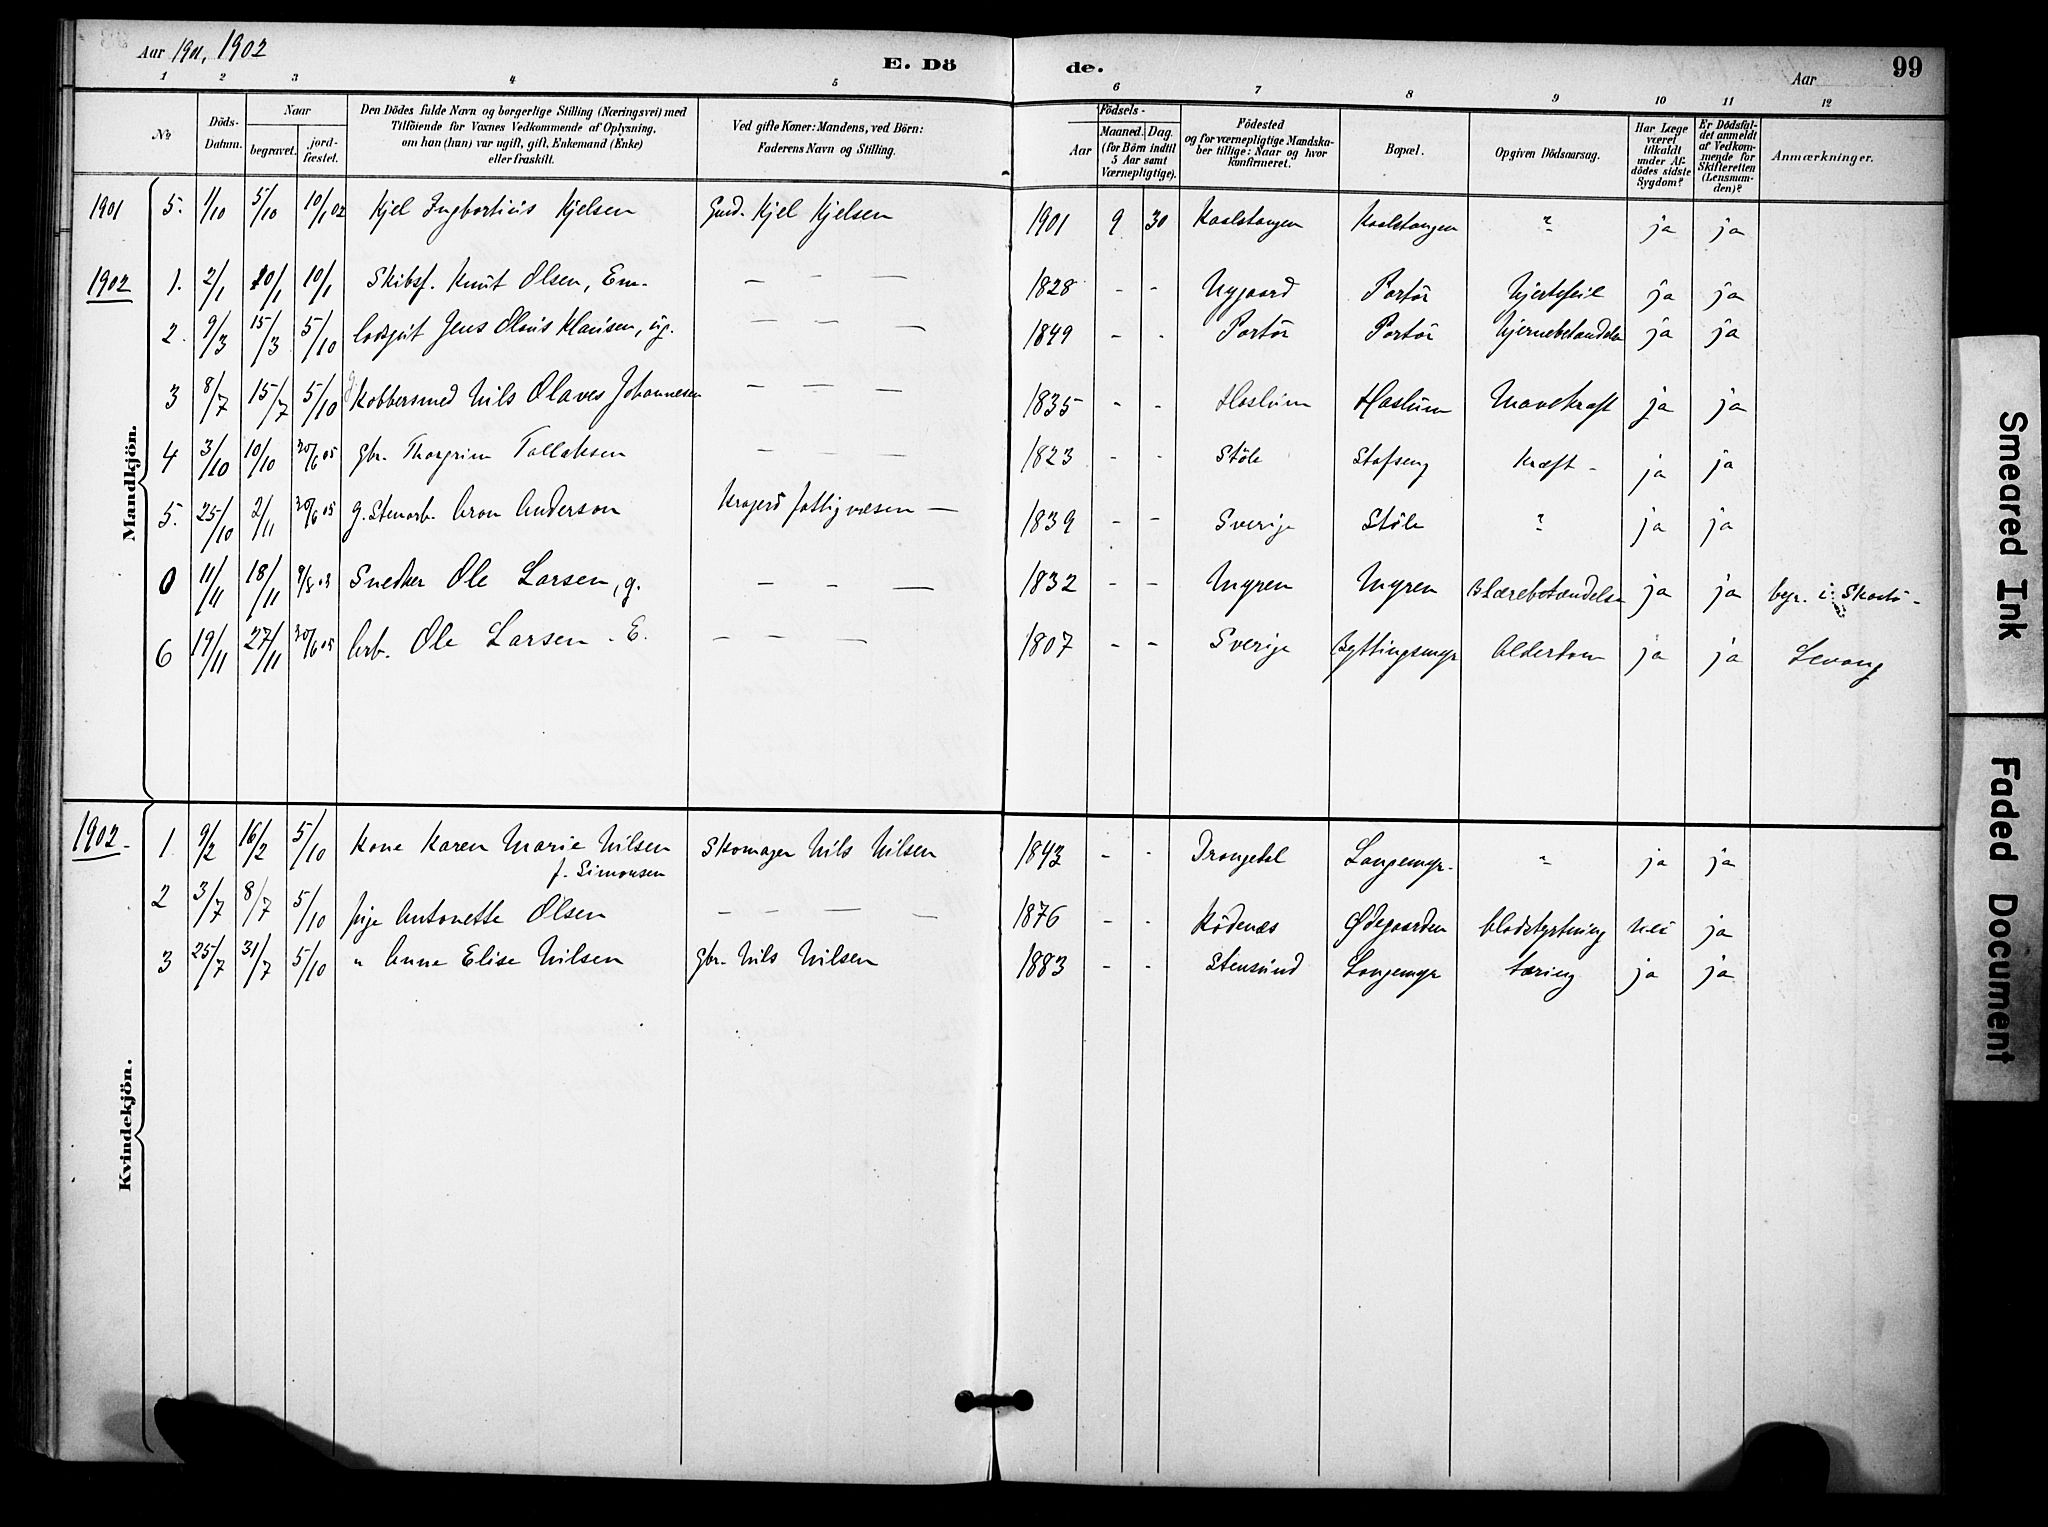 Aar 1901, 1902
E. Dö
de.
Aar
99
1 2 3 4 5 6 7 8 9 10 11 12
No
Döds-Datum.
Naar
begravet.
jord-fæstet.
Den Dödes fulde Navn og borgerlige Stilling (Næringsvei) med
Tilföiende for Voxnes Vedkommende af Oplysning,
om han (hun) var ugift, gift, Enkemand (Enke)
eller fraskilt.
Ved gifte Koner: Mandens, ved Börn:
Faderens Navn og Stilling.
Födsels-
Aar
Maaned. Dag.
(for Börn indtil
5 Aar samt
Værnepligtige).
Födested
og for værnepligtige Mandska-
ber tillige: Naar og hvor
konfirmeret.
Bopæl.
Opgiven Dödsaarsag.
Har Læge
været
tilkaldt
under Af-
dödes sidste
Sygdom?
Er Dödsfal-
det anmeldt
af Vedkom-
mende for
Skifteretten
(Lensman-
den)?
Anmærkninger.
Mandkjön.
1901 5. 1/10 5/10 10/1 02 Kjel Ingbortius Kjelsen Gmd. Kjel Kjelsen 1901 9 30 Kaalstangen Kaalstangen " ja ja
1902 1. 2/1 10/1 10/1 Skibsf. Knut Olsen, Em. — — — 1828 - - Nygaard Portör hjertefeil ja ja
2. 9/3 15/3 5/10 Jens Olaus Klausen, ug. — — — 1849 - - Portör Portör hjernebetændelse ja ja
3 8/7 15/7 5/10 g Kobbersmed Nils Olaves Johannesen — — — 1835 - - Haslum Haslum Mavekræft ja ja
4 3/10 10/10 20/6 05 Gbr. Thorgrim Tollaksen — — 1823 - - Stöle Stofseng Kræft - ja ja
5. 25/10 2/11 20/6 05 g. Stenarb. Aron Anderson Kragerö fattigvæsen — 1839 - - Sverige Stöle " ja ja
0 11/11 18/11 9/8 03 Snedker Ole Larsen, g. — — — 1832 - - Myren Myren Blærebetændelse ja ja begr. i Skaatö -
6 19/11 27/11 20/6 05 Arb. Ole Larsen - E. — — — 1807 - - Sverige Byttingsmyr Alderdom ja ja Levang
Kvindekjön.
1902. 1 9/2 16/2 5/10 Kone Karen Marie Nilsen Skomager Nils Nilsen 1843 - - Drangedal Langemyr. " ja ja
f. Simonsen
2 3/7 8/7 5/10 pige Antonette Olsen — — — — 1876 - - Rödenæs Ödegaarden blodstyrtning nei ja
3 25/7 31/7 5/10 " Anna Elise Nilsen Gbr. Nils Nilsen 1883 - - Stensund Langemyr tæring ja ja
Smeared Ink
Faded Document